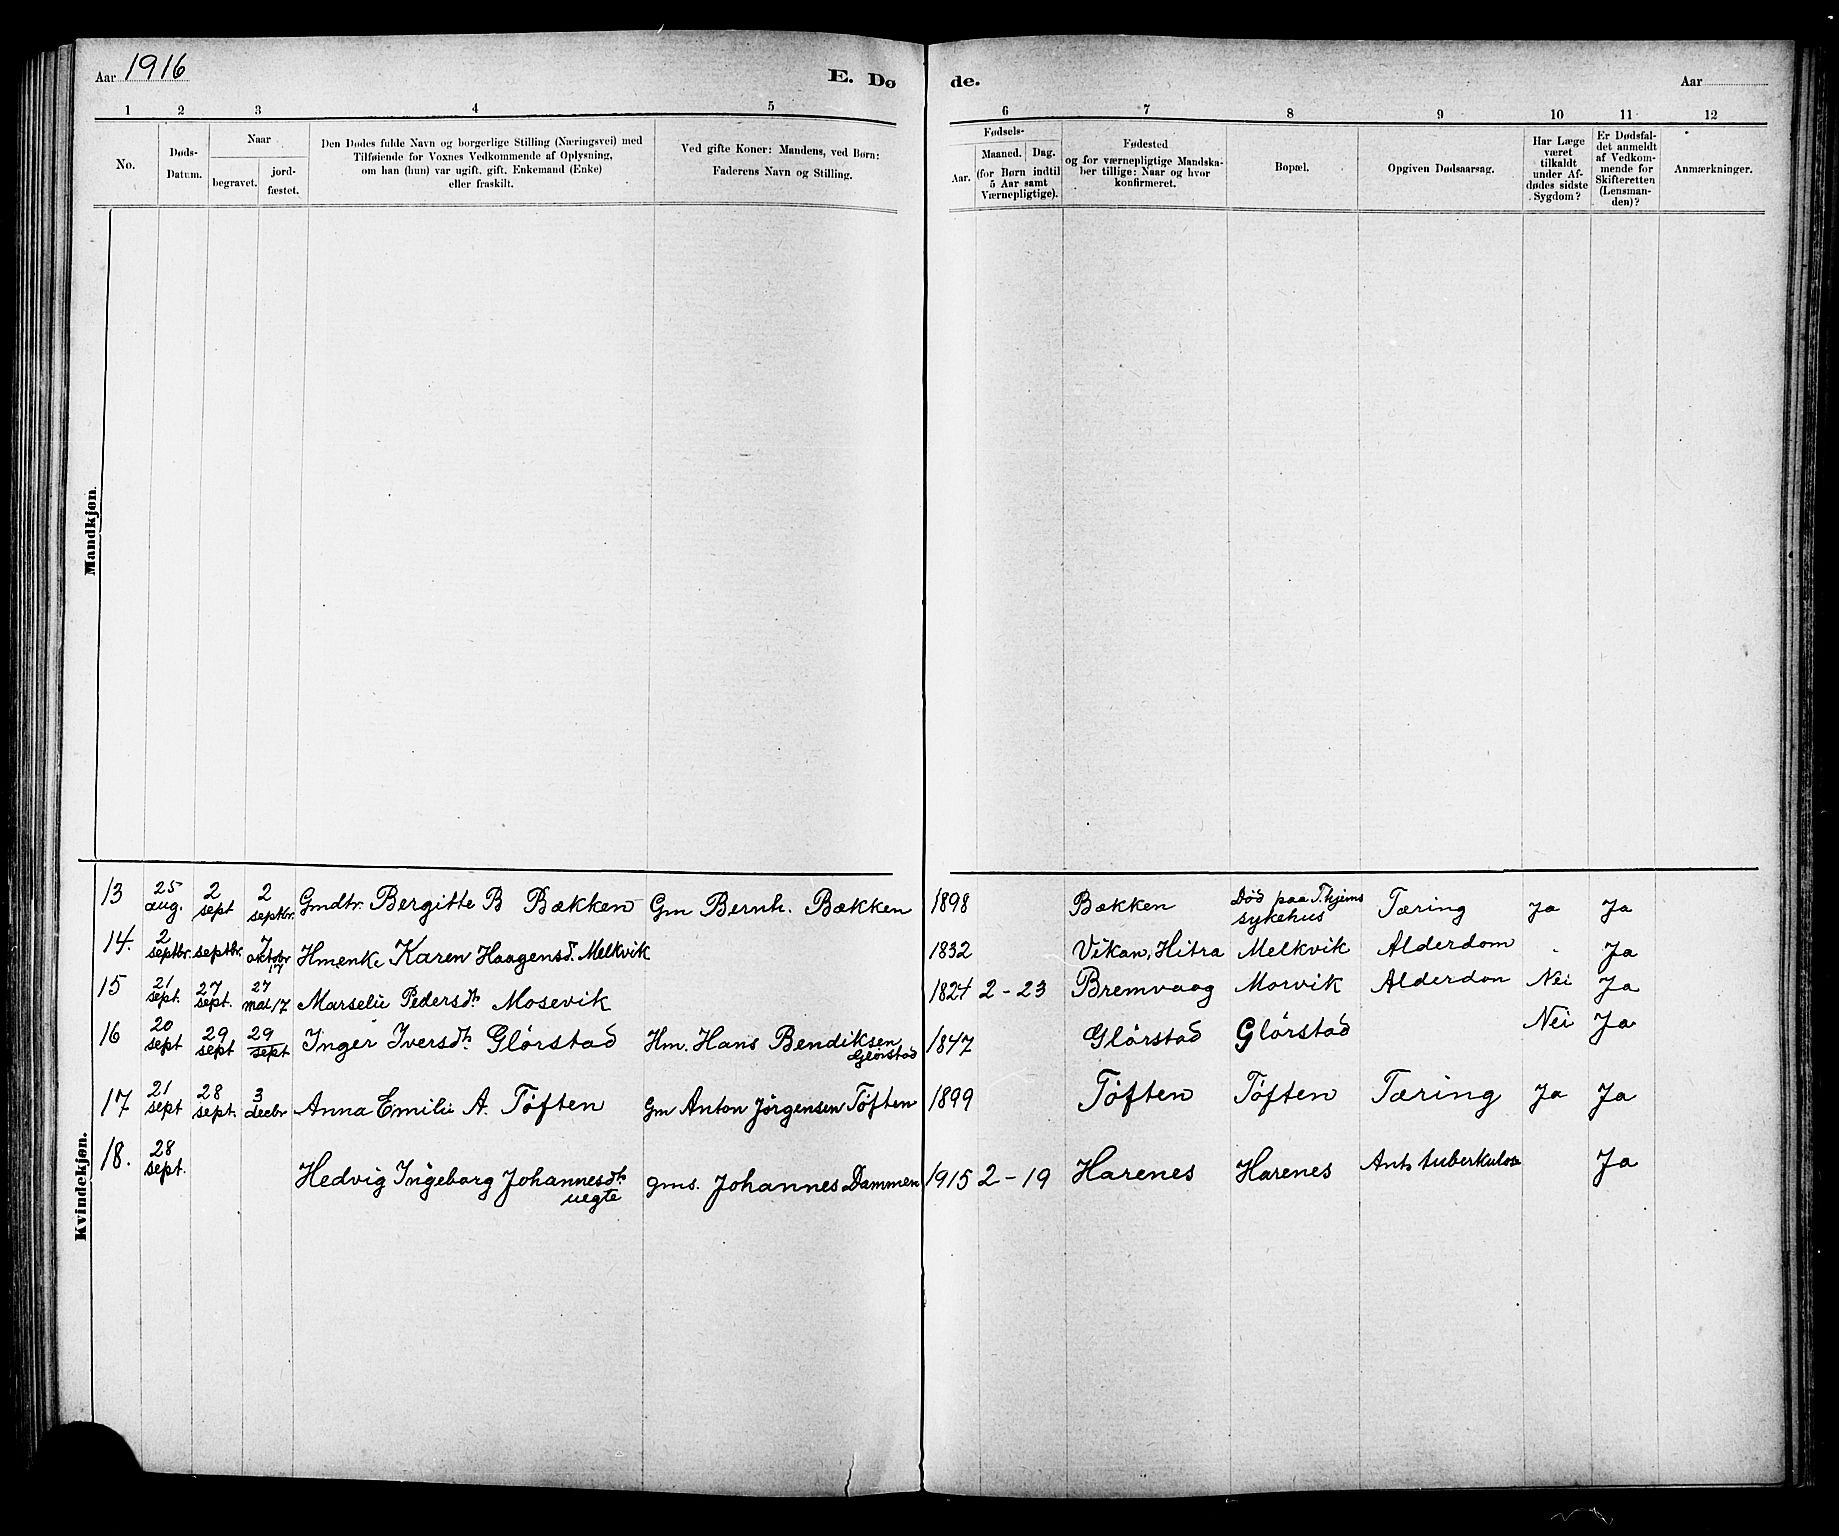 Aar 1916
E. Dø
de.
Aar
1 2 3 4 5 6 7 8 9 10 11 12
No.
Døds-
Datum.
Naar
begravet.
jord-
fæstet.
Den Dødes fulde Navn og borgerlige Stilling (Næringsvei) med
Tilføiende for Voxnes Vedkommende af Oplysning,
om han (hun) var ugift, gift, Enkemand (Enke)
eller fraskilt.
Ved gifte Koner: Mandens, ved Børn:
Faderens Navn og Stilling.
Fødsels-
Aar.
Maaned. Dag.
(for Børn indtil
5 Aar samt
Værnepligtige).
Fødested
og for værnepligtige Mandska-
ber tillige: Naar og hvor
konfirmeret.
Bopæl.
Opgiven Dødsaarsag.
Har Læge
været
tilkaldt
under Af-
dødes sidste
Sygdom?
Er Dødsfal-
det anmeldt
af Vedkom-
mende for
Skifteretten
(Lensman-
den)?
Anmærkninger.
Mandkjøn
Kvindekjøn.
13 25 aug. 2 sept 2 septbr. Gmdtr. Bergitte B Bækken Gm Bernh. Bækken 1898 Bækken Død paa T.hjems sykehus Tæring Ja Ja
14. 2 septbr. septbr. 7 oktobr 17 Hmenke Karen Haagensd. Melkvik 1832 Vikan, Hitra Melkvik Alderdom Ja
15 21 sept. 27 sept. 27 mai 17 Marselie Pedersdtr Mosevik 1824 2-23 Bremvaag Morvik Alderdon Nei Ja
16 20 sept 29 sept 29 sept Inger Iversdtr Glørstad Hm. Hans Bendiksen Glørstad 1847 Glørstad Glørstad Nei Ja
17 21 sept 28 sept. 3 decbr Anna Emilie A. Tøften Gm Anton Jørgensen Tøften 1899 Tøften Tøften Tæring Ja Ja
18. 28 sept. Hedvig Ingeborg Johannesdtr uegte gms. Johannes Dammen 1915 2-19 Harenes Harenes tuberkulose Ja